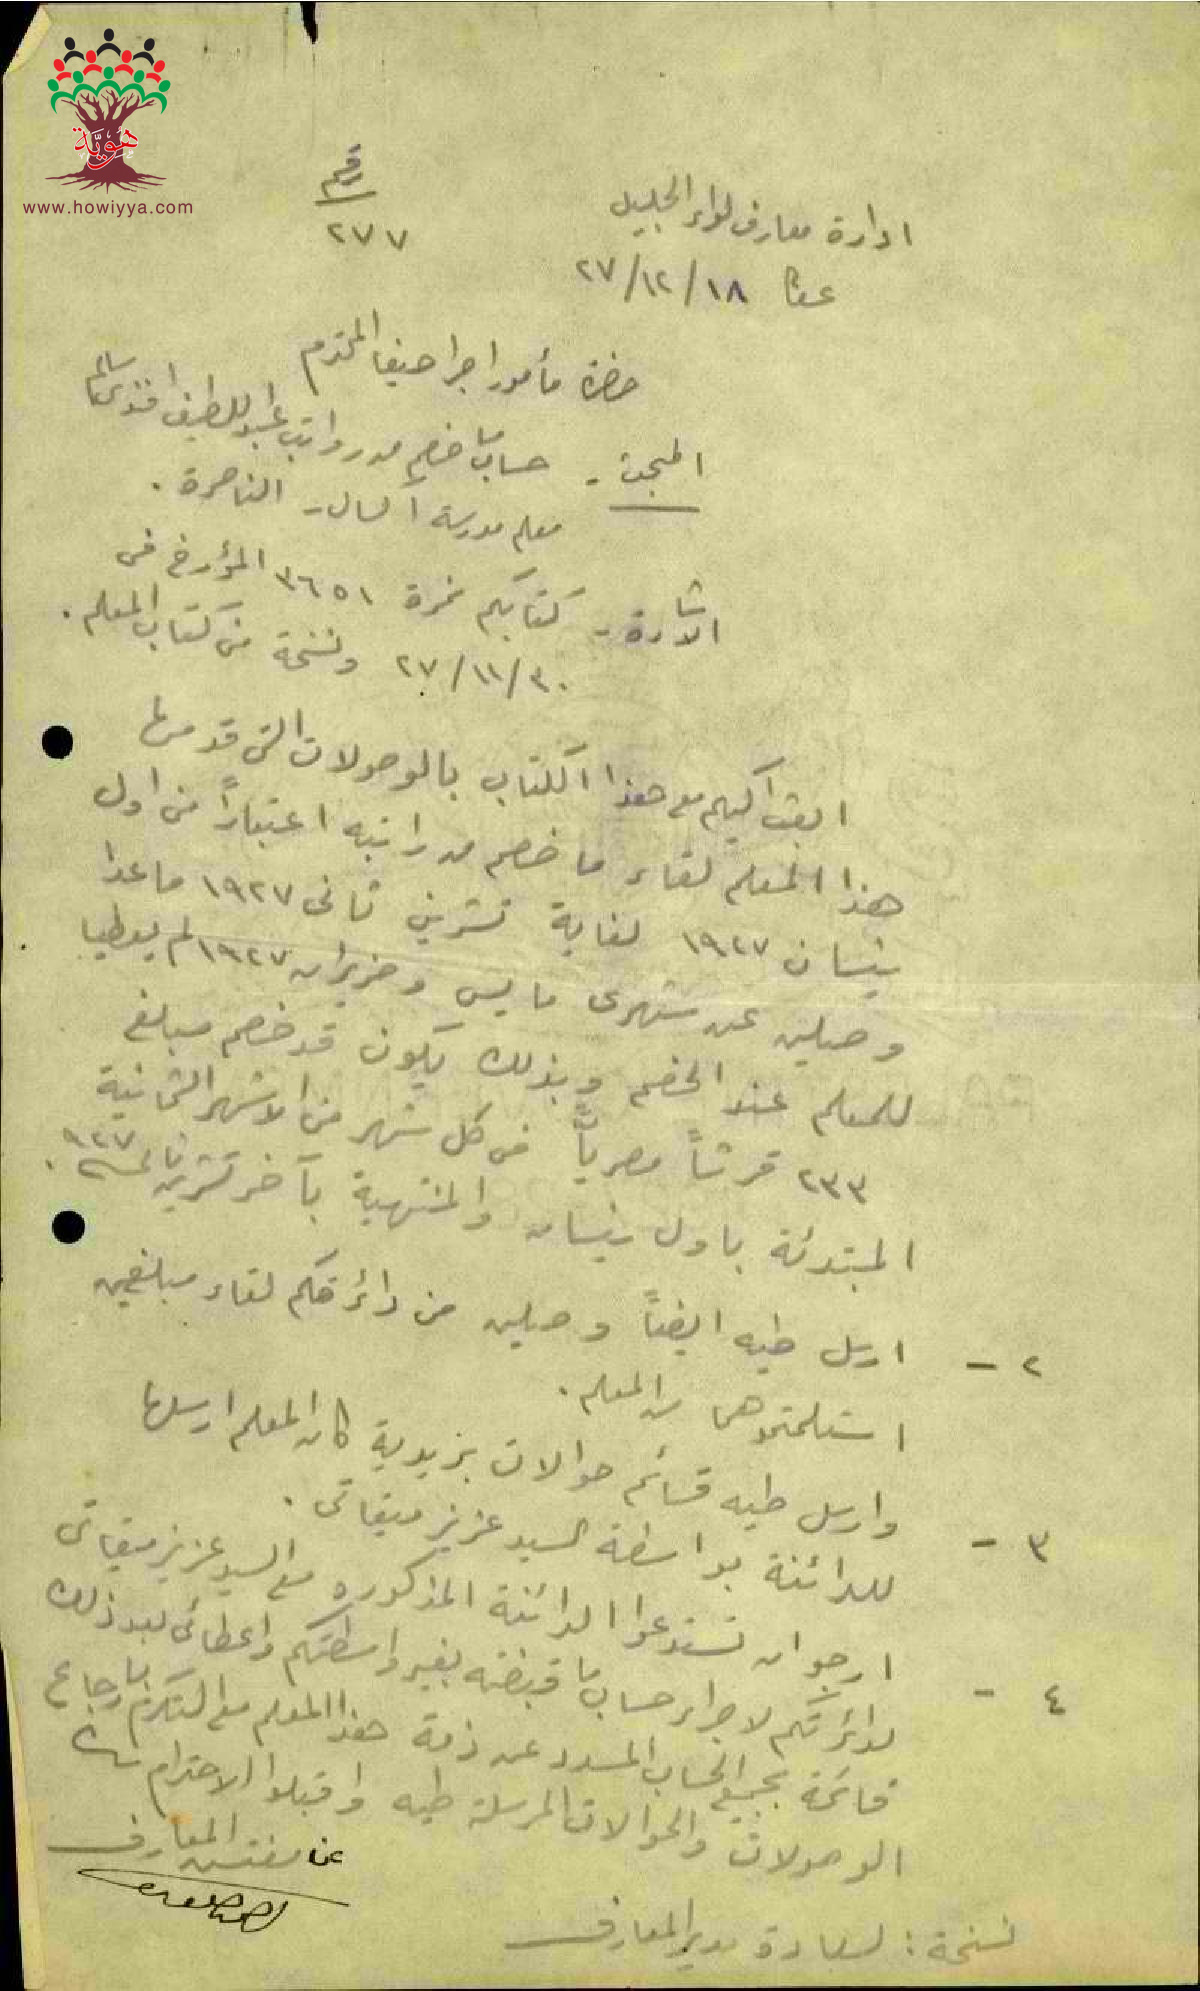 هوية
www.howiyya.com
رقم
٢٧٧
ادارة معارف لواء الجليل
عكا ١٨/١٢/٢٧
حضرة مأمور اجرا حيفا المحترم
المبحث - حساب ما خصم من رواتب عبد اللطيف افندي
معلم مدرسة - الناصرة .
الاشارة - كتابكم نمرة ٣٦٥١ المؤرخ في
٣٠/١١/٢٧ ونسخة من كتاب المعلم .
ابعث اليكم مع هذا الكتاب بالوصولات التي قدمها
هذا المعلم لقاء ما خصم من راتبه اعتباراً من اول
نيسان ١٩٢٧ لغاية تشرين ثاني ١٩٢٧ ما عدا
وصلين عن شهري مايس وحزيران ١٩٢٧ لم يعطيا
للمعلم عند الخصم وبذلك يكون قد خصم مبلغ
٢٣٣ قرشاً مصرياً في كل شهر من الاشهر الثمانية
المبتدئة باول نيسان والمنتهية بآخر تشرين ٩٢٧ .
٢ - ارسل طيه ايضاً وصلين من دائرتكم لقاء مبلغين
استلمتموهما من المعلم .
٣ - وارسل طيه قسائم حوالات بريدية كان المعلم ارسلها
للدائنة بواسطة السيد عزيز ميقاتي .
٤ - ارجو ان تستدعوا الدائنة المذكوره مع السيد عزيز ميقاتي
لدائرتكم لاجراء حساب ما قبضته بغير واسطتكم واعطائي بعد ذلك
قائمة بجميع الحساب المسدد عن ذمة هذا المعلم مع التكرم بارجاع
الوصولات والحوالات المرسلة طيه واقبلوا الاحترام
عن مفتش المعارف
نسخة : لسعادة مدير المعارف